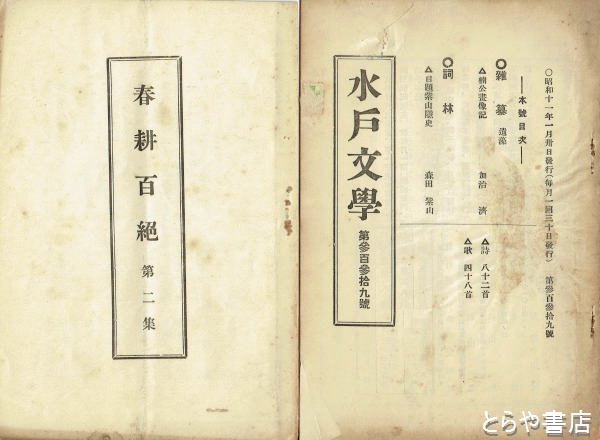 〇昭和十一年一月卅日發行(每月一回三十日發行) 第參百參拾九號
本號目次
〇雜纂 遺藻
△楠公畫像記 加治 濟
〇詞林
△自題紫山隱史 森田 紫山
△詩 八十二首
△歌 四十八首
水戶文學 第參百參拾九號
春耕百絕 第二集
とらや書店